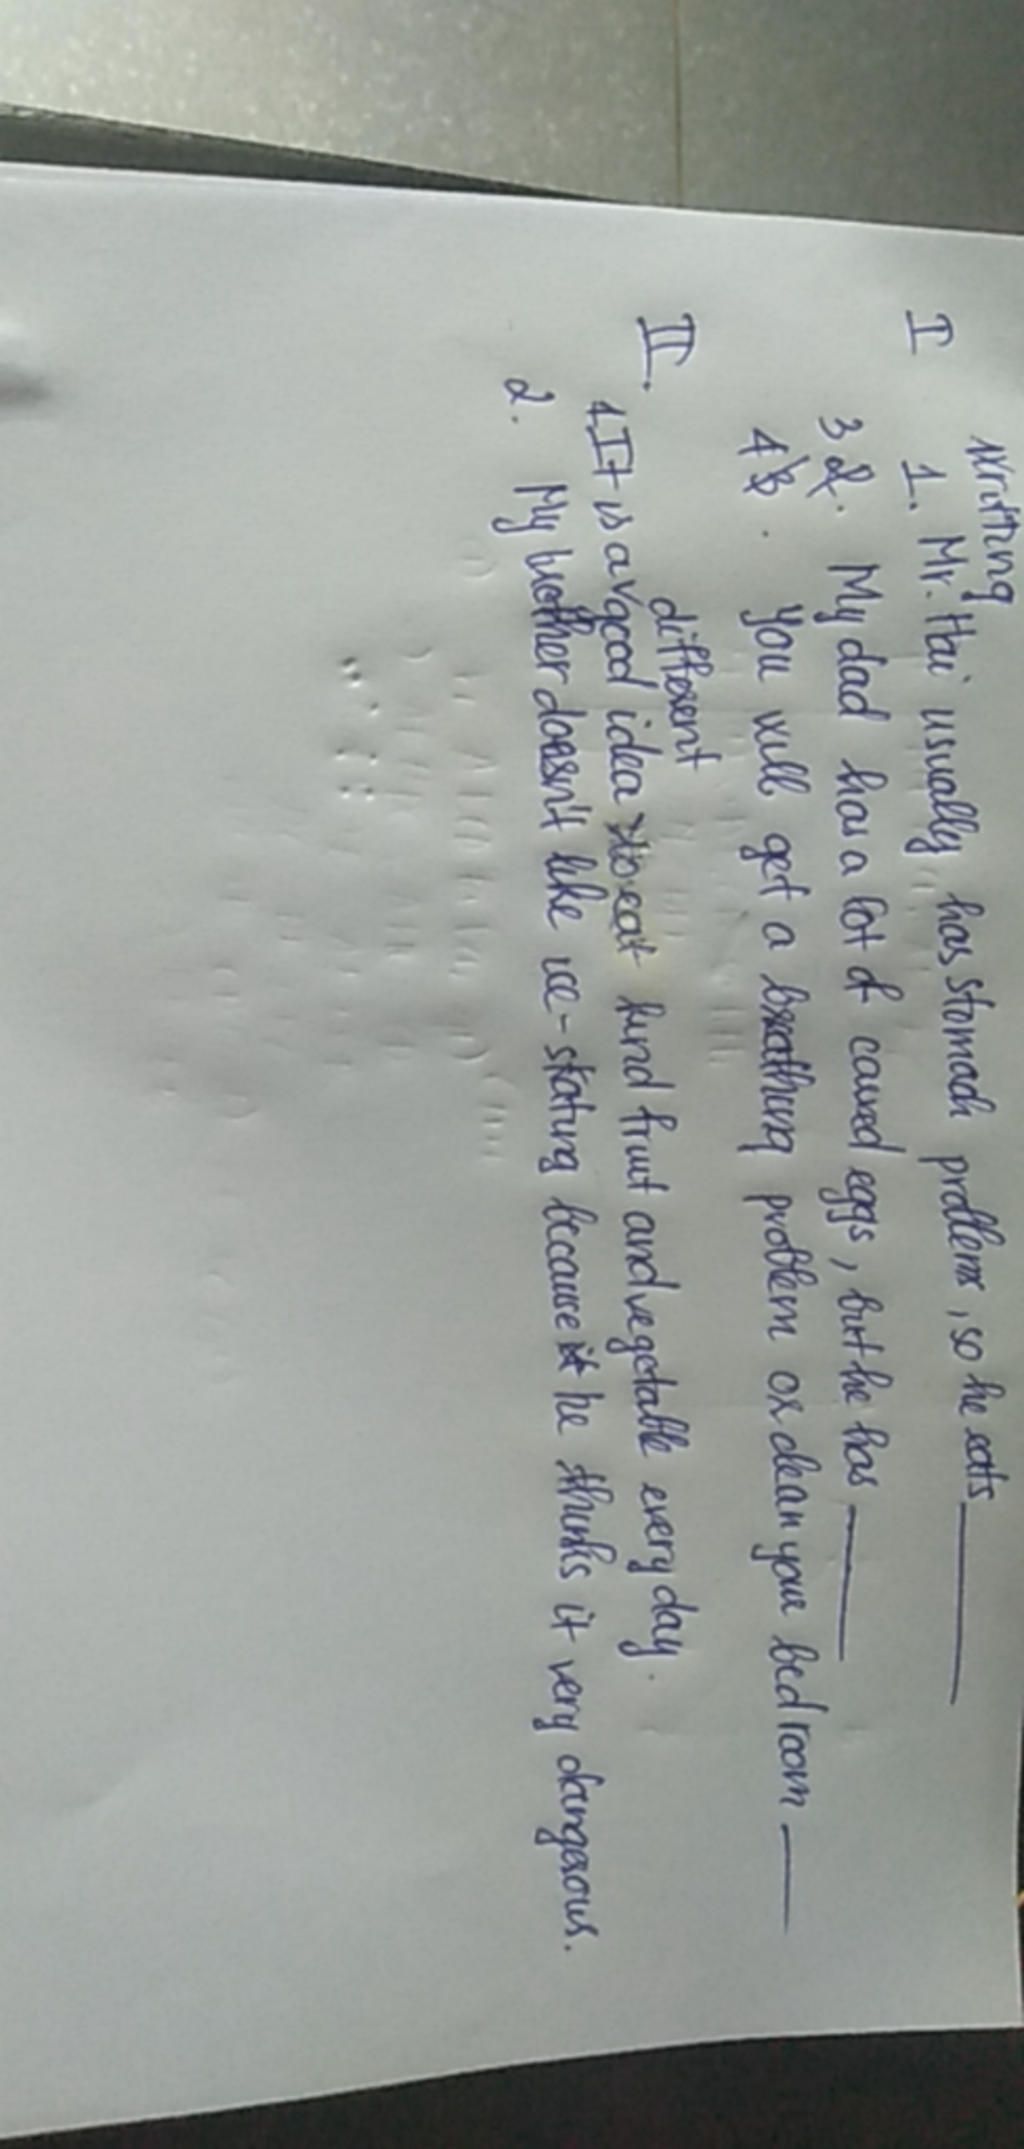 Writting
I 1. Mr. Hai usually has stomach problems, so he eats
3 2. My dad has a lot of carved eggs, but he has
4 3. You will get a breathing problem or clean your bed room
II. different
1. It is a good idea to eat kind fruit and vegetable every day.
2. My brother doesn't like ice-skating because it he thinks it very dangerous.